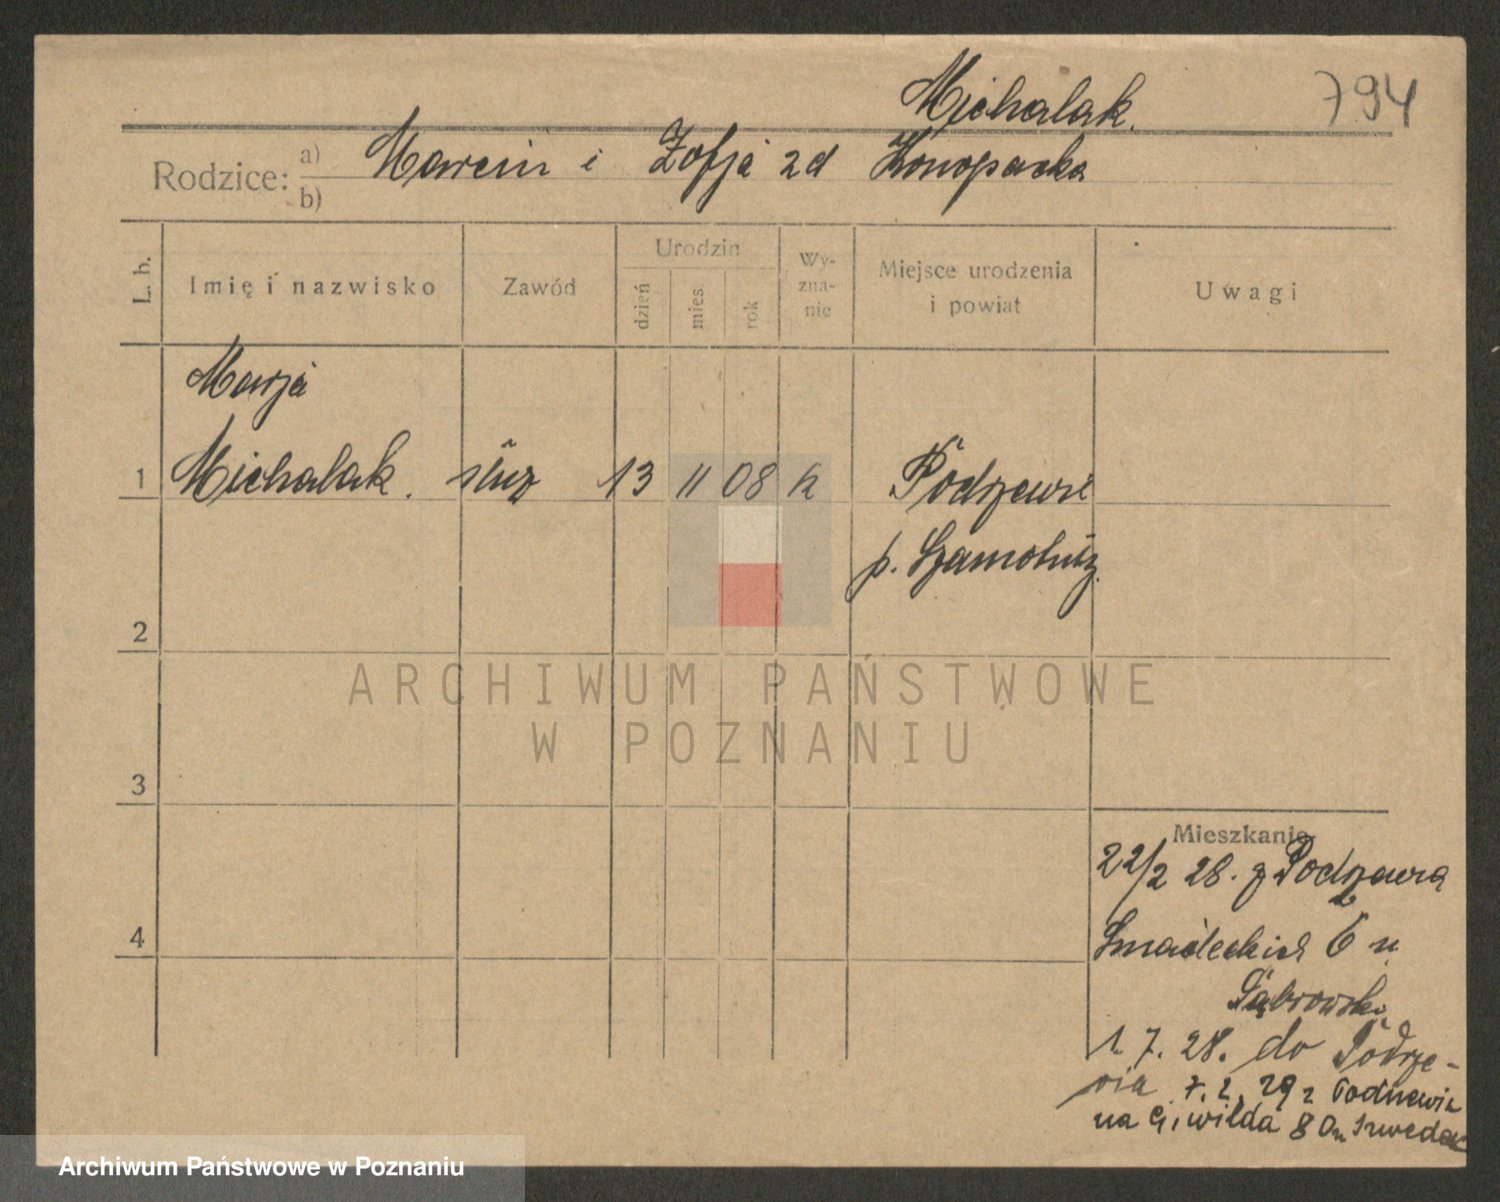 Michalak.
794
Rodzice: a) Marcin i Zofja zd Konopacka
b)
L. b.
Imię i nazwisko
Zawód
Urodzin
dzień
mies
rok
Wy-
zna-
nie
Miejsce urodzenia
i powiat
Uwagi
Marja
1 Michalak. służ 13 11 08 k Podrzewie
p. Szamotuły.
2
3
4
Mieszkanie
22/2 28. z Podrzewia
Śniadeckich 6 u
Dąbrowski
1. 7. 28. do Podrze-
wia 7. 2. 29 z Podrzewia
na G. wilda 80
ARCHIWUM PAŃSTWOWE
W POZNANIU
Archiwum Państwowe w Poznaniu